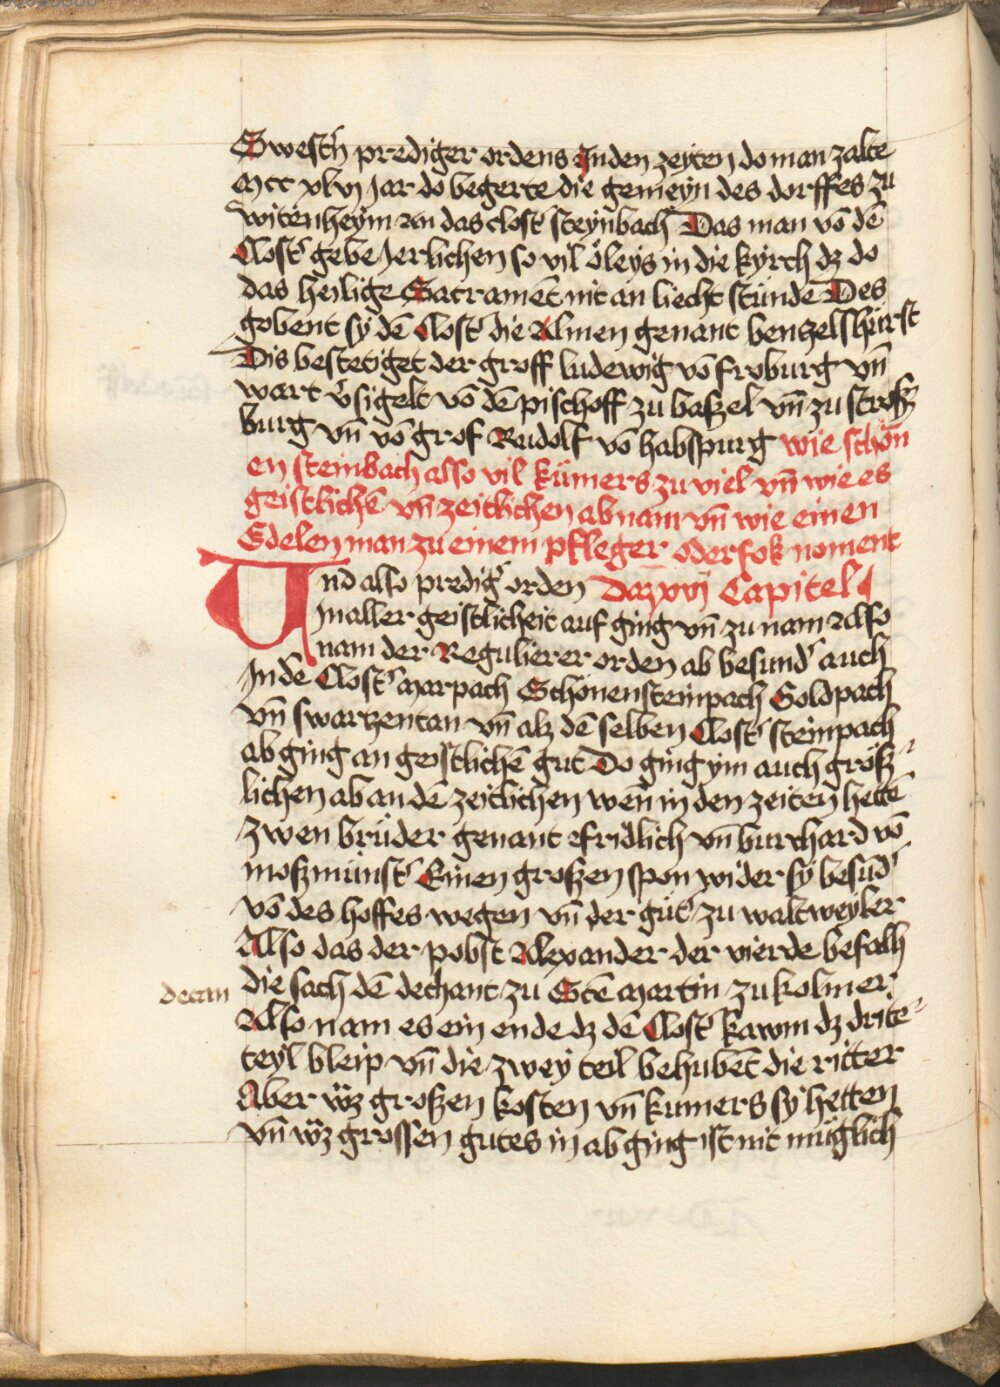 Swestern prediger ordens In den zeyten do man zalte
Mcc xlvj Jar do begerte die gemeyn des dorffes zu
witenheym an das clost' steynbach Das man vō dē
Clost' gebe Jerlichen so vil öleys in die kyrch dz do
das heilige Sacramēt nit an liecht stunde Des
gobent sy dē Clost' die Almen genant benczelshurst
Dis bestetiget der groff ludewig vō froburg vn̄
wart v'sigelt vō dē pischoff zu baßzel vn̄ zu stroß
burg vn̄ vō grof Rudolf vō habspurg wie schön
en steinbach also vil kumers zu viel vn̄ wie es
geistlichē vn̄ zeitlichen abnam vn̄ wie einen
Edelen man zu einem pfleger oder fok noment
Und also predig' orden Daz xvj Capitel
In aller geistlicheit auf ging vn̄ zu nam Also
nam der Regulierer orden ab besund' auch
In dē Clost' Marpach Schönensteinpach Goldpach
vn̄ swarczentan vn̄ alz dē selben Clost' steinpach
ab ging an geistlichē gut Do ging ym auch größ
lichen ab an dē zeitlichen wen̄ in den zeiten hettē
zwen brüder genant fridlich vn̄ burchard vō
moßmünst' Einen großen spon wider sy besūd'
vō des hoffes wegen vn̄ der güt' zu waltweyler
Also das der pobst Alexander der vierde befalh
decan
die sach dē dechant zu Sātē Martin zu kolmer
Also nam es ein ende dz dē Clost' kawm dz drite
teyl bleip vn̄ die zwey teil behubēt die ritter
Aber wz großen kosten vn̄ kumers sy hetten
vn̄ wz grossen gutes in ab ging ist nit müglich